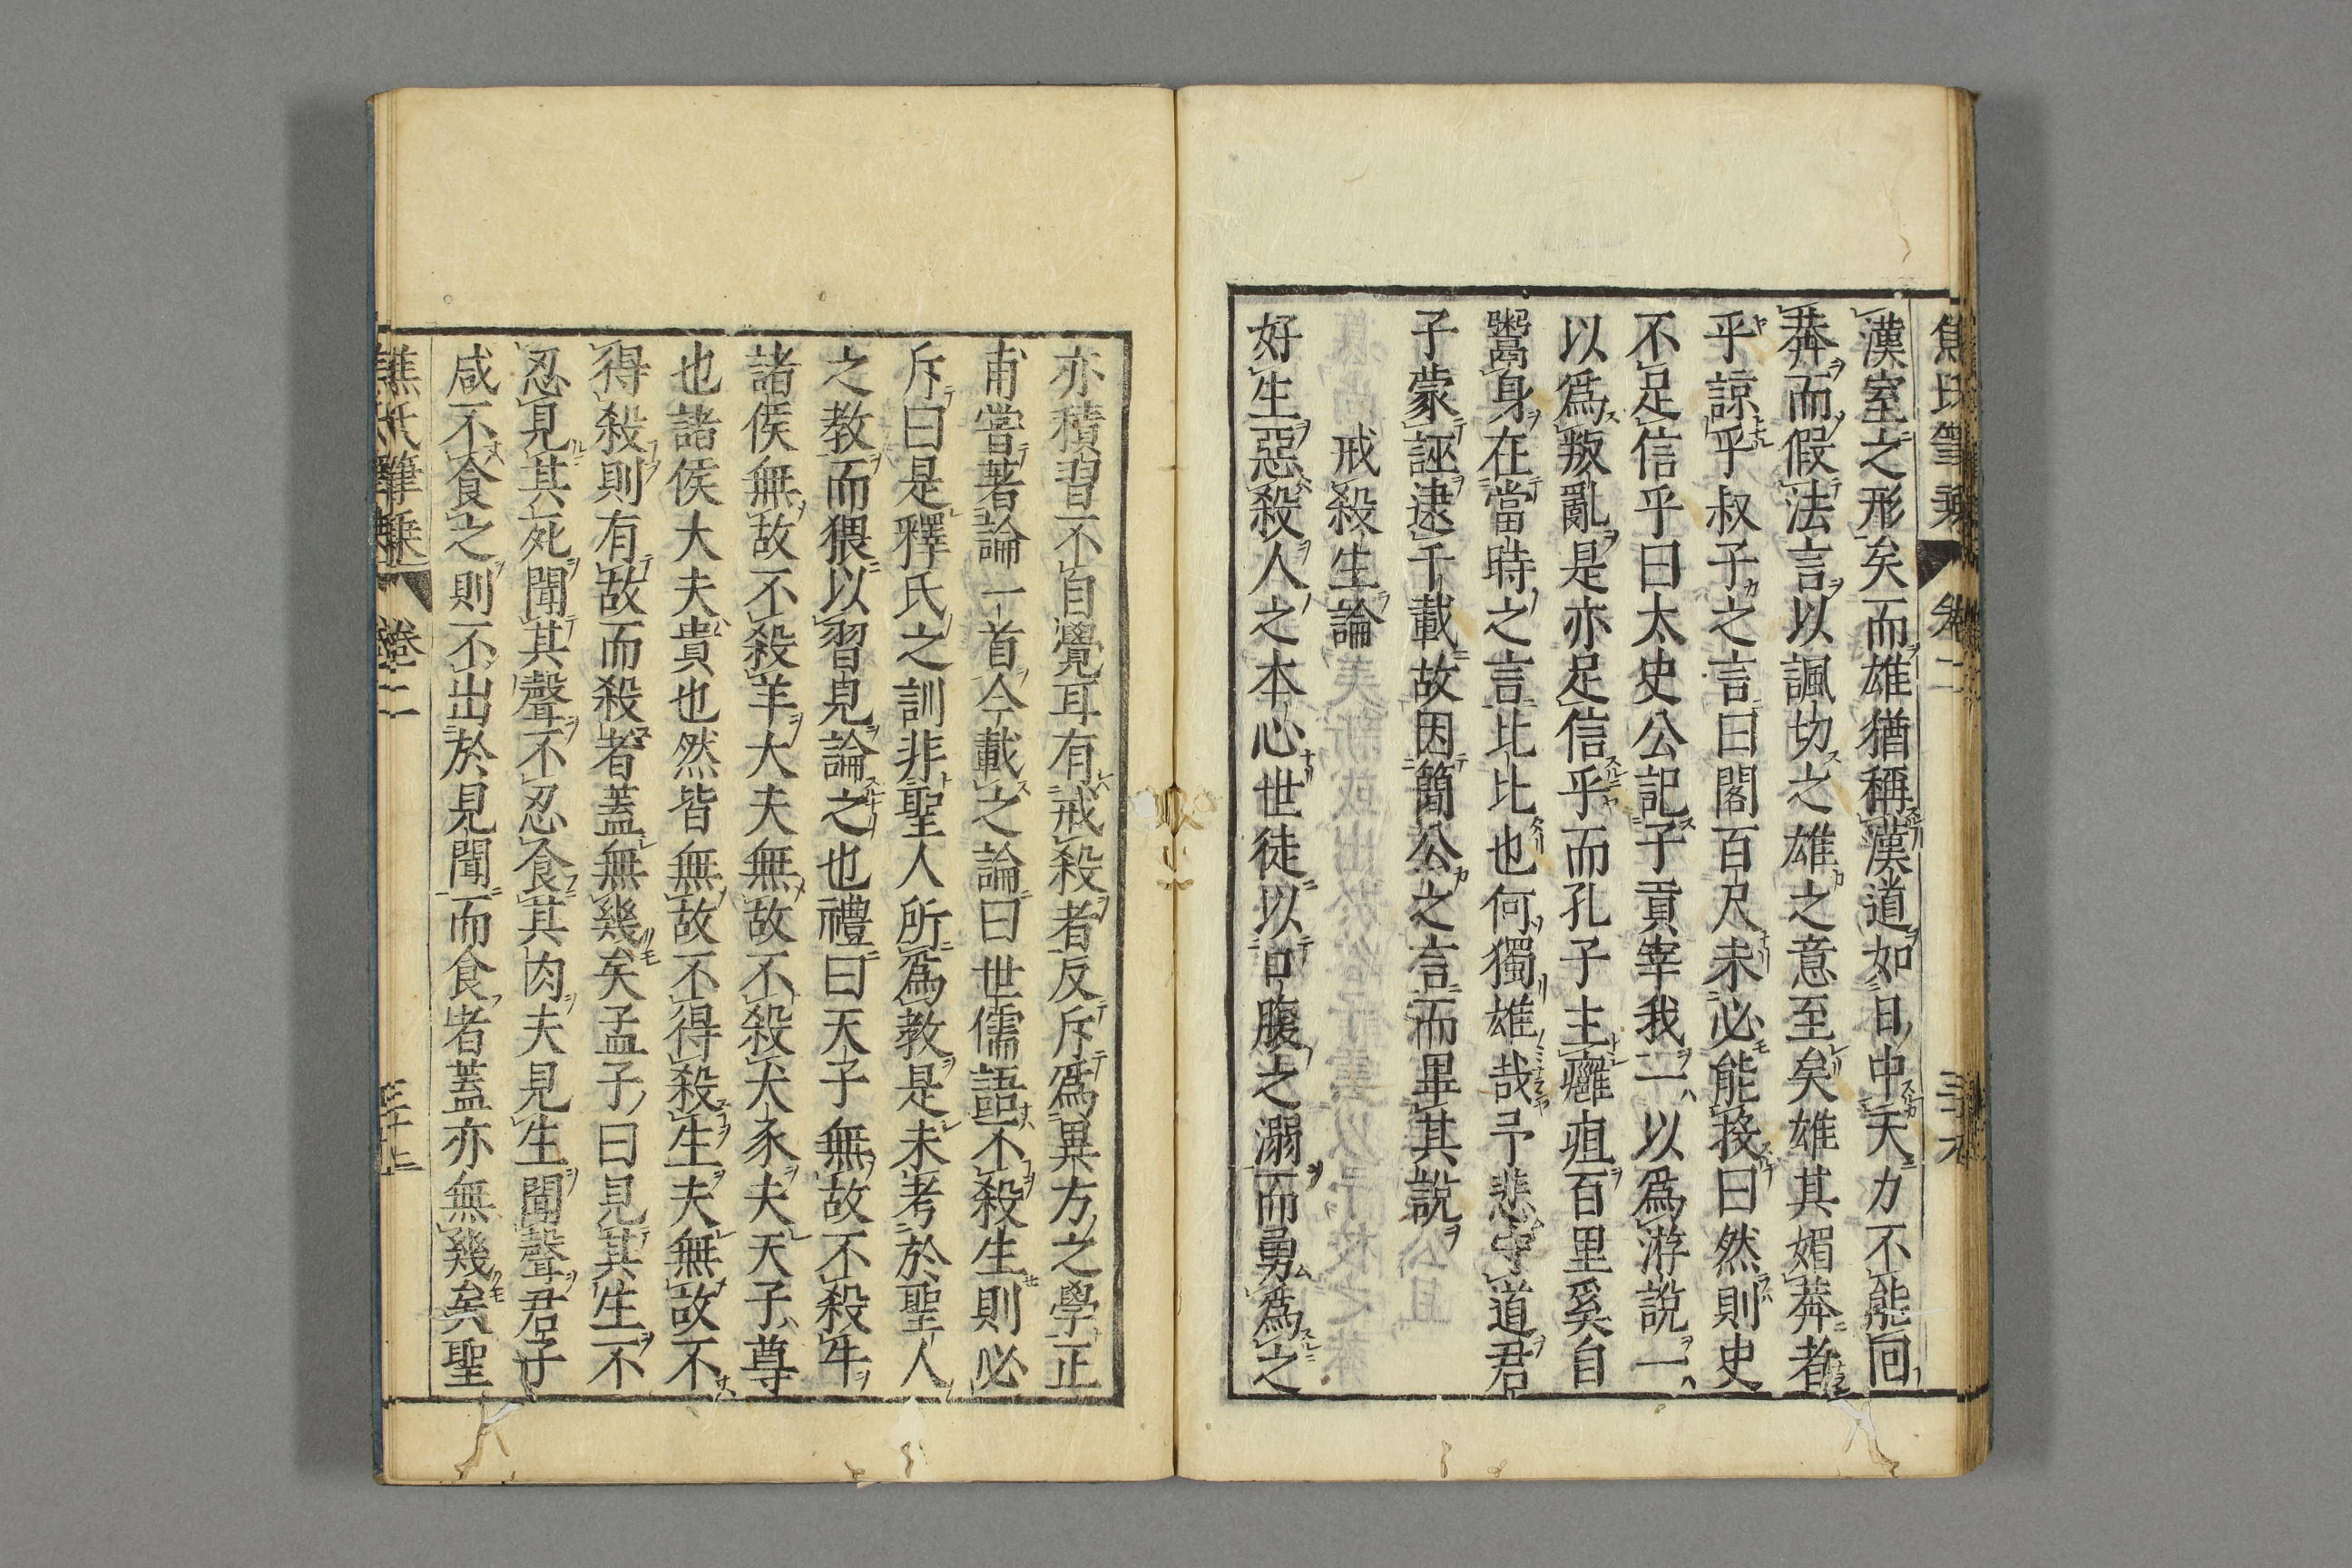 漢室之形矣而雄猶稱漢道如日中天力不能囘
莽而假法言以諷切之雄之意至矣雄其媚莽者
乎諒乎叔子之言曰閣百尺未必能投曰然則史
不足信乎曰太史公記子貢宰我一以爲游說一
以爲叛亂是亦足信乎而孔子主癰疽百里奚自
鬻身在當時之言比比也何獨雄哉予悲守道君
子蒙誣逮千載故因簡公之言而畢其說
戒殺生論
好生惡殺人之本心世徒以口腹之溺而勇爲之
亦積習不自覺耳有戒殺者反斥爲異方之學正
甫嘗著論一首今載之論曰世儒語不殺生則必
斥曰是釋氏之訓非聖人所爲教是未考於聖人
之教而猥以習見論之也禮曰天子無故不殺牛
諸侯無故不殺羊大夫無故不殺犬豕夫天子尊
也諸侯大夫貴也然皆無故不得殺生夫無故不
得殺則有故而殺者蓋無幾矣孟子曰見其生不
忍見其死聞其聲不忍食其肉夫見生聞聲君子
咸不食之則不出於見聞而食者蓋亦無幾矣聖
焦氏筆乘 卷二